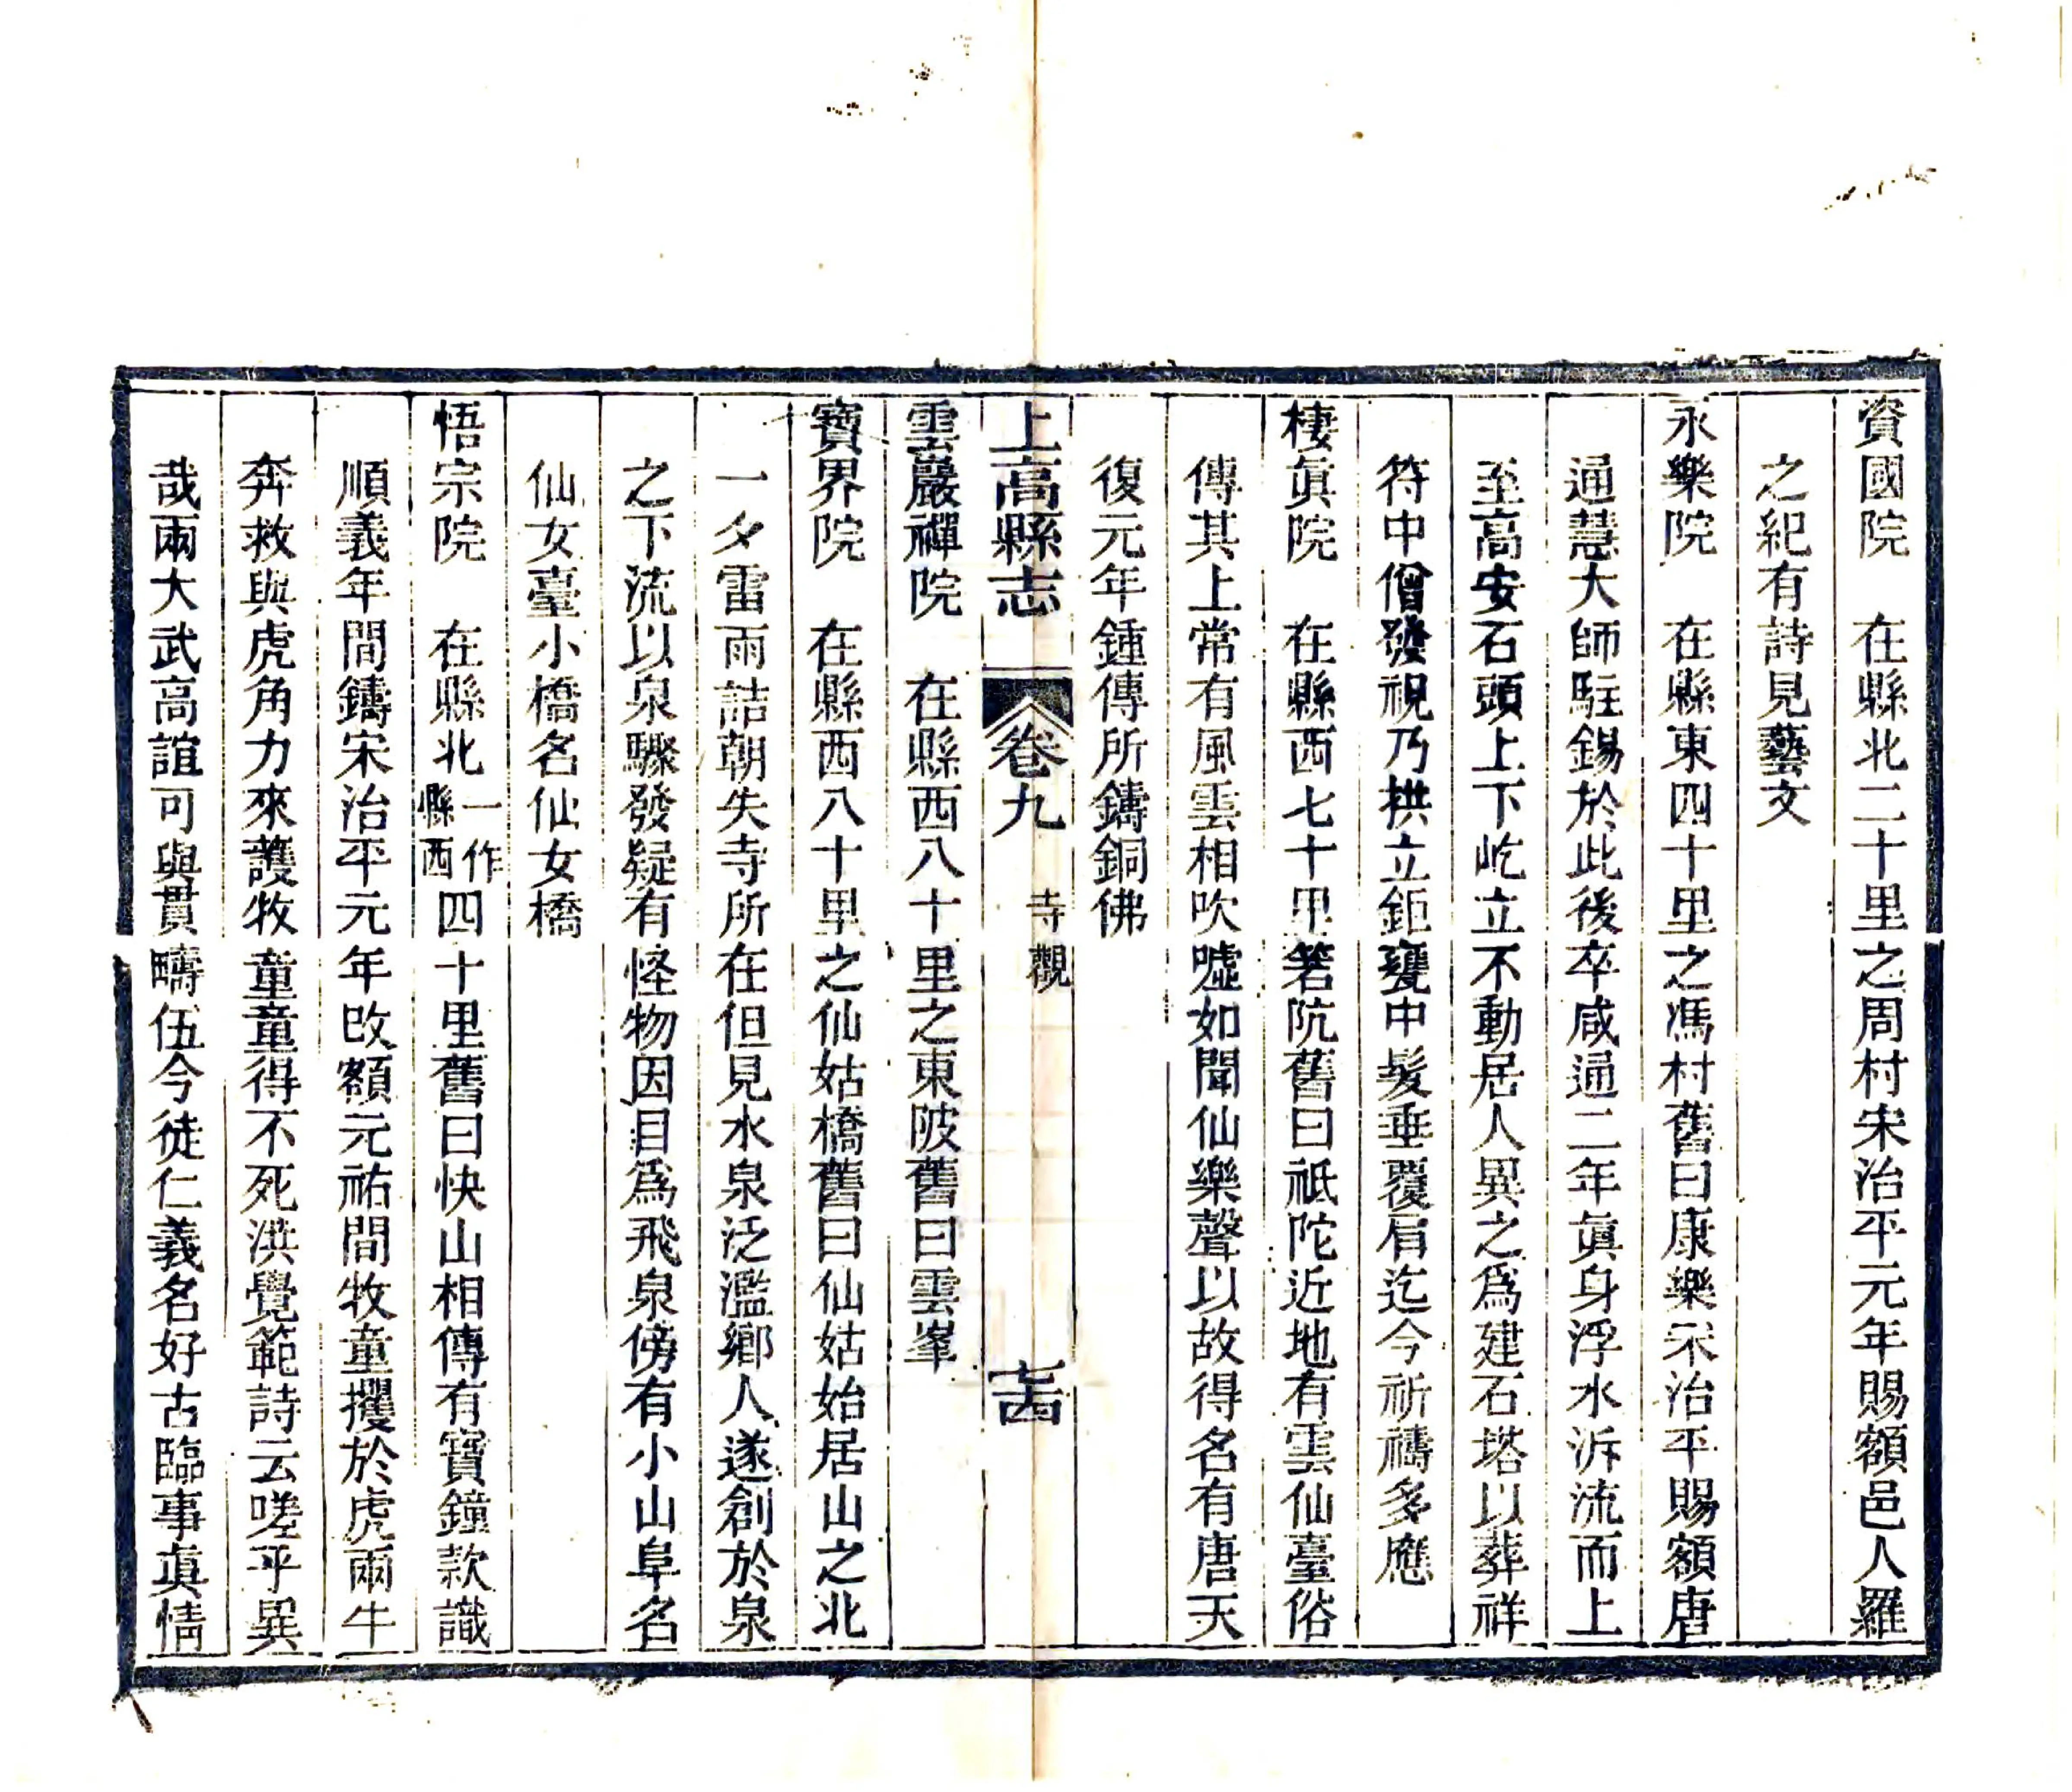 資國院　在縣北二十里之周村宋治平元年賜額邑人羅
之紀有詩見藝文
永樂院　在縣東四十里之馮村舊曰康樂宋治平賜額唐
通慧大師駐錫於此後卒咸通二年眞身浮水泝流而上
至高安石頭上下屹立不動居人異之爲建石塔以葬祥
符中僧發視乃拱立鉅甕中髮垂覆肩迄今祈禱多應
棲眞院　在縣西七十里箬阬舊曰祗陀近地有雲仙臺俗
傳其上常有風雲相吹噓如聞仙樂聲以故得名有唐天
復元年鍾傳所鑄銅佛
上高縣志　卷九　寺觀　七十四
雲巖禪院　在縣西八十里之東陂舊曰雲峯
寶界院　在縣西八十里之仙姑橋舊曰仙姑始居山之北
一夕雷雨詰朝失寺所在但見水泉泛濫鄉人遂創於泉
之下流以泉驟發疑有怪物因目爲飛泉傍有小山阜名
仙女臺小橋名仙女橋
悟宗院　在縣北一作縣西四十里舊曰快山相傳有寶鐘款識
順義年間鑄宋治平元年改額元祐間牧童攫於虎兩牛
奔救與虎角力來護牧童童得不死洪覺範詩云嗟乎異
哉兩大武高誼可與貫疇伍今徒仁義名好古臨事眞情